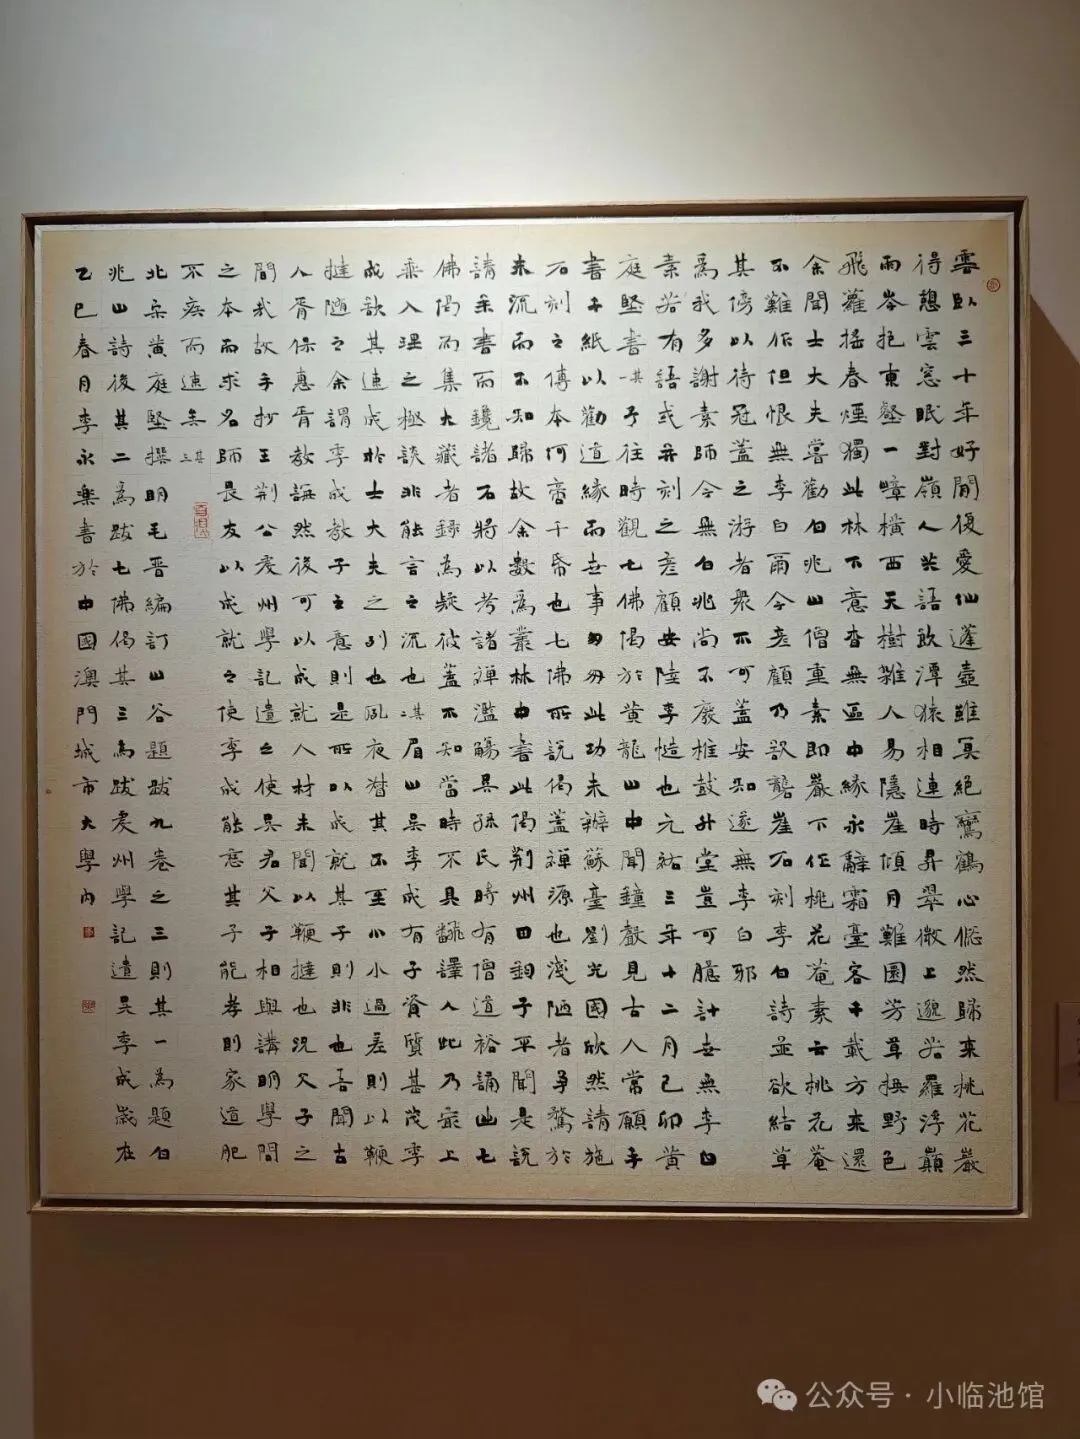 雲臥三十年好閒復愛仙蓬壺雖冥絕鸞鶴心悠然歸來桃花巖
得憩雲窓眠對嶺人共語飲潭猿相連時昇翠微上邈若羅浮巔
兩岑抱東壑一嶂橫西天樹雜人易隱崖傾月難圓芳草換野色
飛蘿搖春煙獨此林下意杳無區中緣永辭霜臺客千載方來還
余聞士大夫嘗勸白兆山僧重素即巖下作桃花菴素云桃花菴
不難作但恨無李白爾今彥顧乃欲礱崖石刻李白詩並欲結草
其傍以待冠蓋之游者衆不可蓋安知遂無李白邪
為我多謝素師今無白兆尚不廢椎鼓升堂豈可臆計世無李白
素若有語或并刻之彥顧安陸李慥也元祐三年十二月己卯黃
庭堅書其一予往時觀七佛偈於黃龍山中聞鐘聲見古人常願手
書千紙以勸道緣而世事匆匆此功未辦蘇臺劉光國欣然請施
石刻之傳本何啻千帋也七佛所說偈蓋禪源也淺陋者爭驚於
末流而不知歸故余數為叢林中書此偈荆州田鈞子平聞是說
請余書而鑱諸石將以考諸禪濫觴具孫氏時有僧道裕誦出七
佛偈而集大藏者錄為疑彼蓋不知當時不具翻譯人此乃最上
乘入理之極談非能言之流也其二眉山吳季成有子資質甚茂季
成欲其速成於士大夫之列也夙夜督其不至小小過差則以鞭
撻隨之余謂季成教子之意則是所以成就其子則非也吾聞古
人胥保惠胥教誨然後可以成就人材未聞以鞭撻也況父子之
間哉故手抄王荆公虔州學記遺之使吳君父子相與講明學問
之本而求名師良友以成就之使季成能慈其子能孝則家道肥
不疾而速矣其三
北宋黃庭堅撰明毛晋編訂山谷題跋九卷之三則其一為題白
兆山詩後其二為跋七佛偈其三為跋虔州學記遺吳季成歲在
乙巳春月李永樂書於中國澳門城市大學內
公众号·小临池馆